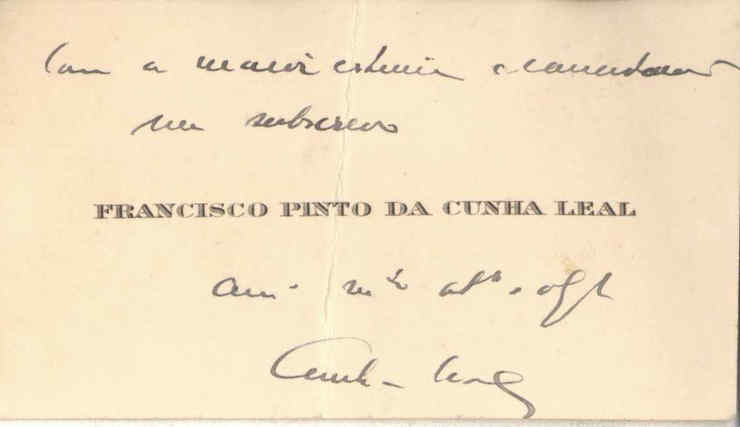 Com a maior estima e consideração
me subscrevo
FRANCISCO PINTO DA CUNHA LEAL
am.º m.to at.to e obg.
Cunha Leal